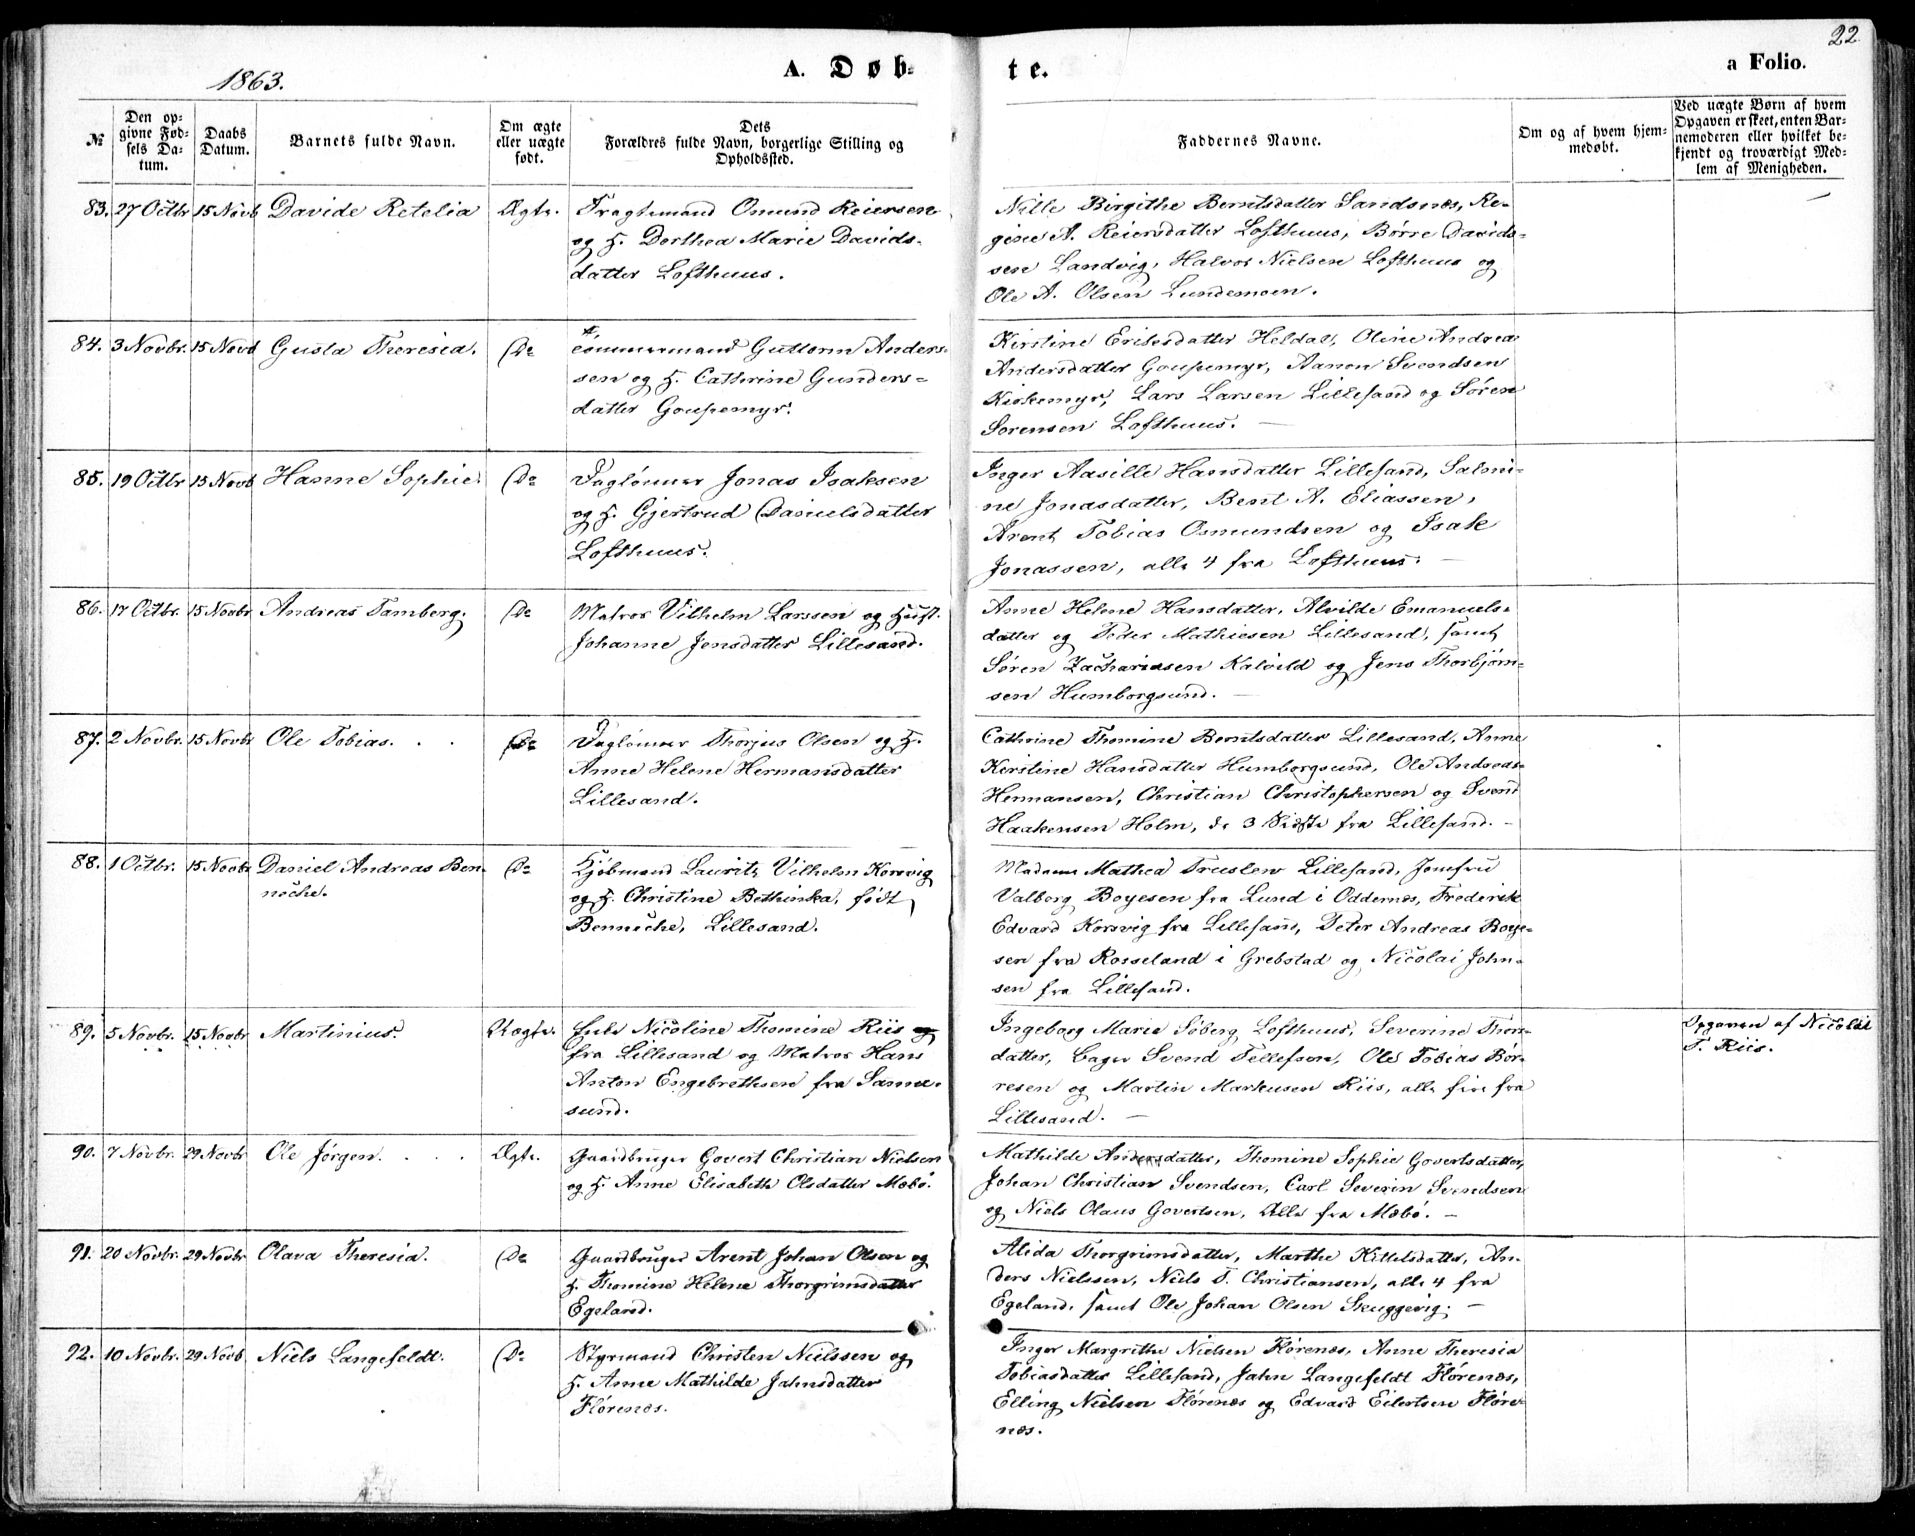 22
1863.
A. Døb-
te.
a Folio.
№
Den op-
givne Fød-
sels Da-
tum.
Daabs
Datum.
Barnets fulde Navn.
Om ægte
eller uægte
født.
Dets
Forældres fulde Navn, borgerlige Stilling og
Opholdssted.
Faddernes Navne.
Om og af hvem hjem-
medøbt.
Ved uægte Børn af hvem
Opgaven er skeet, enten Bar-
nemoderen eller hvilket be-
kjendt og troværdigt Med-
lem af Menigheden.
83. 27 Octbr 15 Novb Davide Retelia Ægte.
Fragtemand Omund Reiersen
og H. Dorthea Marie Davids-
datter Lofthuus.
Nille Birgithe Berntsdatter Sandsnæs, Re-
gine A. Reiersdatter Lofthuus, Børre Davids-
sen Landvig, Halvor Nielsen Lofthuus og
Ole A. Olsen Lundemoen.
84. 3 Novbr. 15 Novb Gusta Theresia. Do
Tømmermand Guttorm Anders-
sen og H. Cathrine Gunders-
datter Goupemyr.
Kirstine Ericsdatter Heldal, Oline Andrea
Andersdatter Goupemyr, Aanon Svendsen
Kirkemyr, Lars Larsen Lillesand og Søren
Sørensen Lofthuus. —
85. 19 Octbr 15 Novb Hanne Sophie Do
Daglønner Jonas Isaksen
og H. Gjertrud Danielsdatter
Lofthuus.
Inger Aasille Hansdatter Lillesand, Salmi-
ne Jonasdatter, Bent A. Eliassen,
Arent Tobias Osmundsen og Isak
Jonassen, alle 4 fra Lofthuus. —
86. 17 Octbr. 15 Novbr Andreas Tamberg. Do
Matros Vilhelm Larssen og Hust.
Johanne Jensdatter Lillesand.
Anne Helene Hansdatter, Alvilde Emanuels-
datter og Peder Mathiesen Lillesand, samt
Søren Zachariasen Kalvild og Jens Thorbjørn-
sen Humborgsund. —
87. 2 Novbr. 15 Novbr Ole Tobias. . . Do
Daglønner Thorjus Olsen og H.
Anne Helene Hermansdatter
Lillesand.
Cathrine Thomine Berntsdatter Lillesand, Anne
Kirstine Hansdatter Humborgsund, Ole Andreas
Hermansen, Christian Christophersen og Svend
Haakensen Holm, de 3 Sidste fra Lillesand. —
88. 1 Octbr. 15 Novbr Daniel Andreas Ben-
neche. Do
Kjøbmand Lauritz Vilhelm Korsvig
og H. Christine Bethinka, født
Benneche, Lillesand.
Madame Mathea Truslew Lillesand, Jomfru
Valborg Boyesen fra Lund i Oddernæs, Frederik
Edvard Korsvig fra Lillesand, Peter Andreas Boye-
sen fra Rosseland i Grebstad og Nicolai John-
sen fra Lillesand.
89. 5 Novbr. 15 Novbr Martinius. Uægte.
Enke Nicoline Thomine Riis og
fra Lillesand og Matros Hans
Anton Engebrethsen fra Sanne-
sund.
Ingeborg Marie Søberg, Lofthuus, Severine Thor-
datter, Bager Svend Tellefsen, Ole Tobias Bør-
resen og Martin Markusen Riis, alle fire fra
Lillesand. —
Opgaven af Nicoline
T. Riis.
90. 7 Novbr. 29 Novbr Ole Jørgen. . . . Ægte.
Gaardbruger Govert Christian Nielsen
og H. Anne Elisabeth Olsdatter Mæbø.
Mathilde Andersdatter, Thomine Sophie Govertsdatter,
Johan Christian Svendsen, Carl Severin Svendsen
og Niels Olaus Govertsen, Alle fra Mæbø. —
91. 20 Novbr. 29 Novbr Olava Theresia. Do
Gaardbruger Arent Johan Olsen og
H. Thomine Helene Thorgrimsdatter
Egeland.
Alida Thorgrimsdatter, Marthe Kittelsdatter, An-
ders Nielssen, Niels T. Christiansen, alle 4 fra
Egeland, samt Ole Johan Olsen Skuggevig. —
92. 10 Novbr. 29 Novb Niels Langefeldt. Do
Styrmand Christen Nielssen og
H. Anne Mathilde Jahnsdatter
Flørenæs.
Inger Margrithe Nielsen Flørenæs, Anne Theresia
Tobiasdatter Lillesand, Jahn Langefeldt Flørenæs,
Elling Nielsen Flørenæs og Edvard Eilertsen Fløre-
næs.